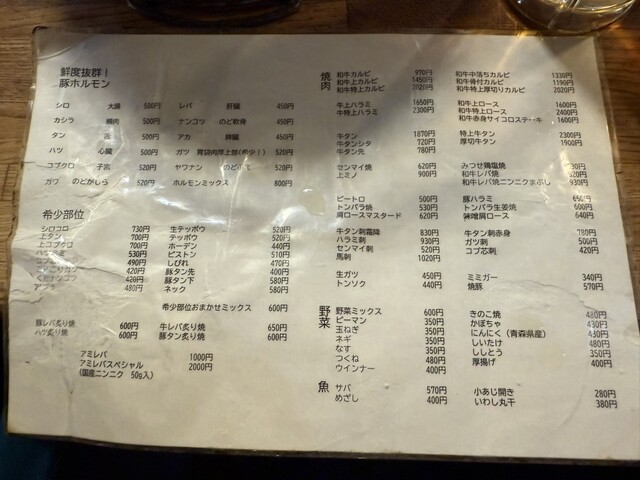 鮮度抜群！
豚ホルモン
シロ 大腸 500円 レバ 肝臓 450円
カシラ 頬肉 500円 ナンコツ のど軟骨 450円
タン 舌 500円 アカ 脾臓 450円
ハツ 心臓 500円 ガツ 胃袋肉厚上部(希少！) 520円
コブクロ 子宮 520円 ヤワナン のど 520円
ガワ のどがしら 520円 ホルモンミックス 800円
希少部位
シロコロ 730円 生テッポウ 520円
上タン 700円 テッポウ 520円
上コブクロ 700円 ホーデン 440円
530円 ピストン 510円
490円 しびれ 470円
420円 豚タン先 400円
420円 豚タン下 580円
480円 ネック 580円
希少部位おまかせミックス 600円
豚レバ炙り焼 600円 牛レバ炙り焼 650円
ハツ炙り焼 600円 豚タン炙り焼 600円
アミレバ 1000円
アミレバスペシャル 2000円
(国産ニンニク 50g入)
焼肉
和牛カルビ 970円 和牛中落ちカルビ 1330円
和牛上カルビ 1450円 和牛骨付カルビ 1190円
和牛特上カルビ 2020円 和牛特上厚切りカルビ 2020円
牛上ハラミ 1650円 和牛上ロース 1600円
牛特上ハラミ 2300円 和牛特上ロース 2400円
和牛赤身サイコロステーキ 1600円
牛タン 1870円 特上牛タン 2300円
牛タンシタ 720円 厚切牛タン 1900円
牛タン先 780円
センマイ焼 620円 みつせ鶏塩焼
上ミノ 900円 和牛レバ焼
和牛レバ焼ニンニクまぶし 930円
ピートロ 500円 豚ハラミ 650円
トンバラ焼 530円 トンバラ生姜焼 600円
肩ロースマスタード 620円 味噌肩ロース 640円
牛タン刺霜降 830円 牛タン刺赤身 780円
ハラミ刺 930円 ガツ刺 500円
センマイ刺 520円 コブ芯刺 420円
馬刺 1020円
生ガツ 450円 ミミガー 340円
トンソク 440円 焼豚 570円
野菜
野菜ミックス 600円 きのこ焼 480円
ピーマン 350円 かぼちゃ 430円
玉ねぎ 350円 にんにく（青森県産） 430円
ネギ 350円 しいたけ 480円
なす 350円 ししとう 350円
つくね 480円 厚揚げ 400円
ウインナー 400円
魚
サバ 570円 小あじ開き 280円
めざし 400円 いわし丸干 380円